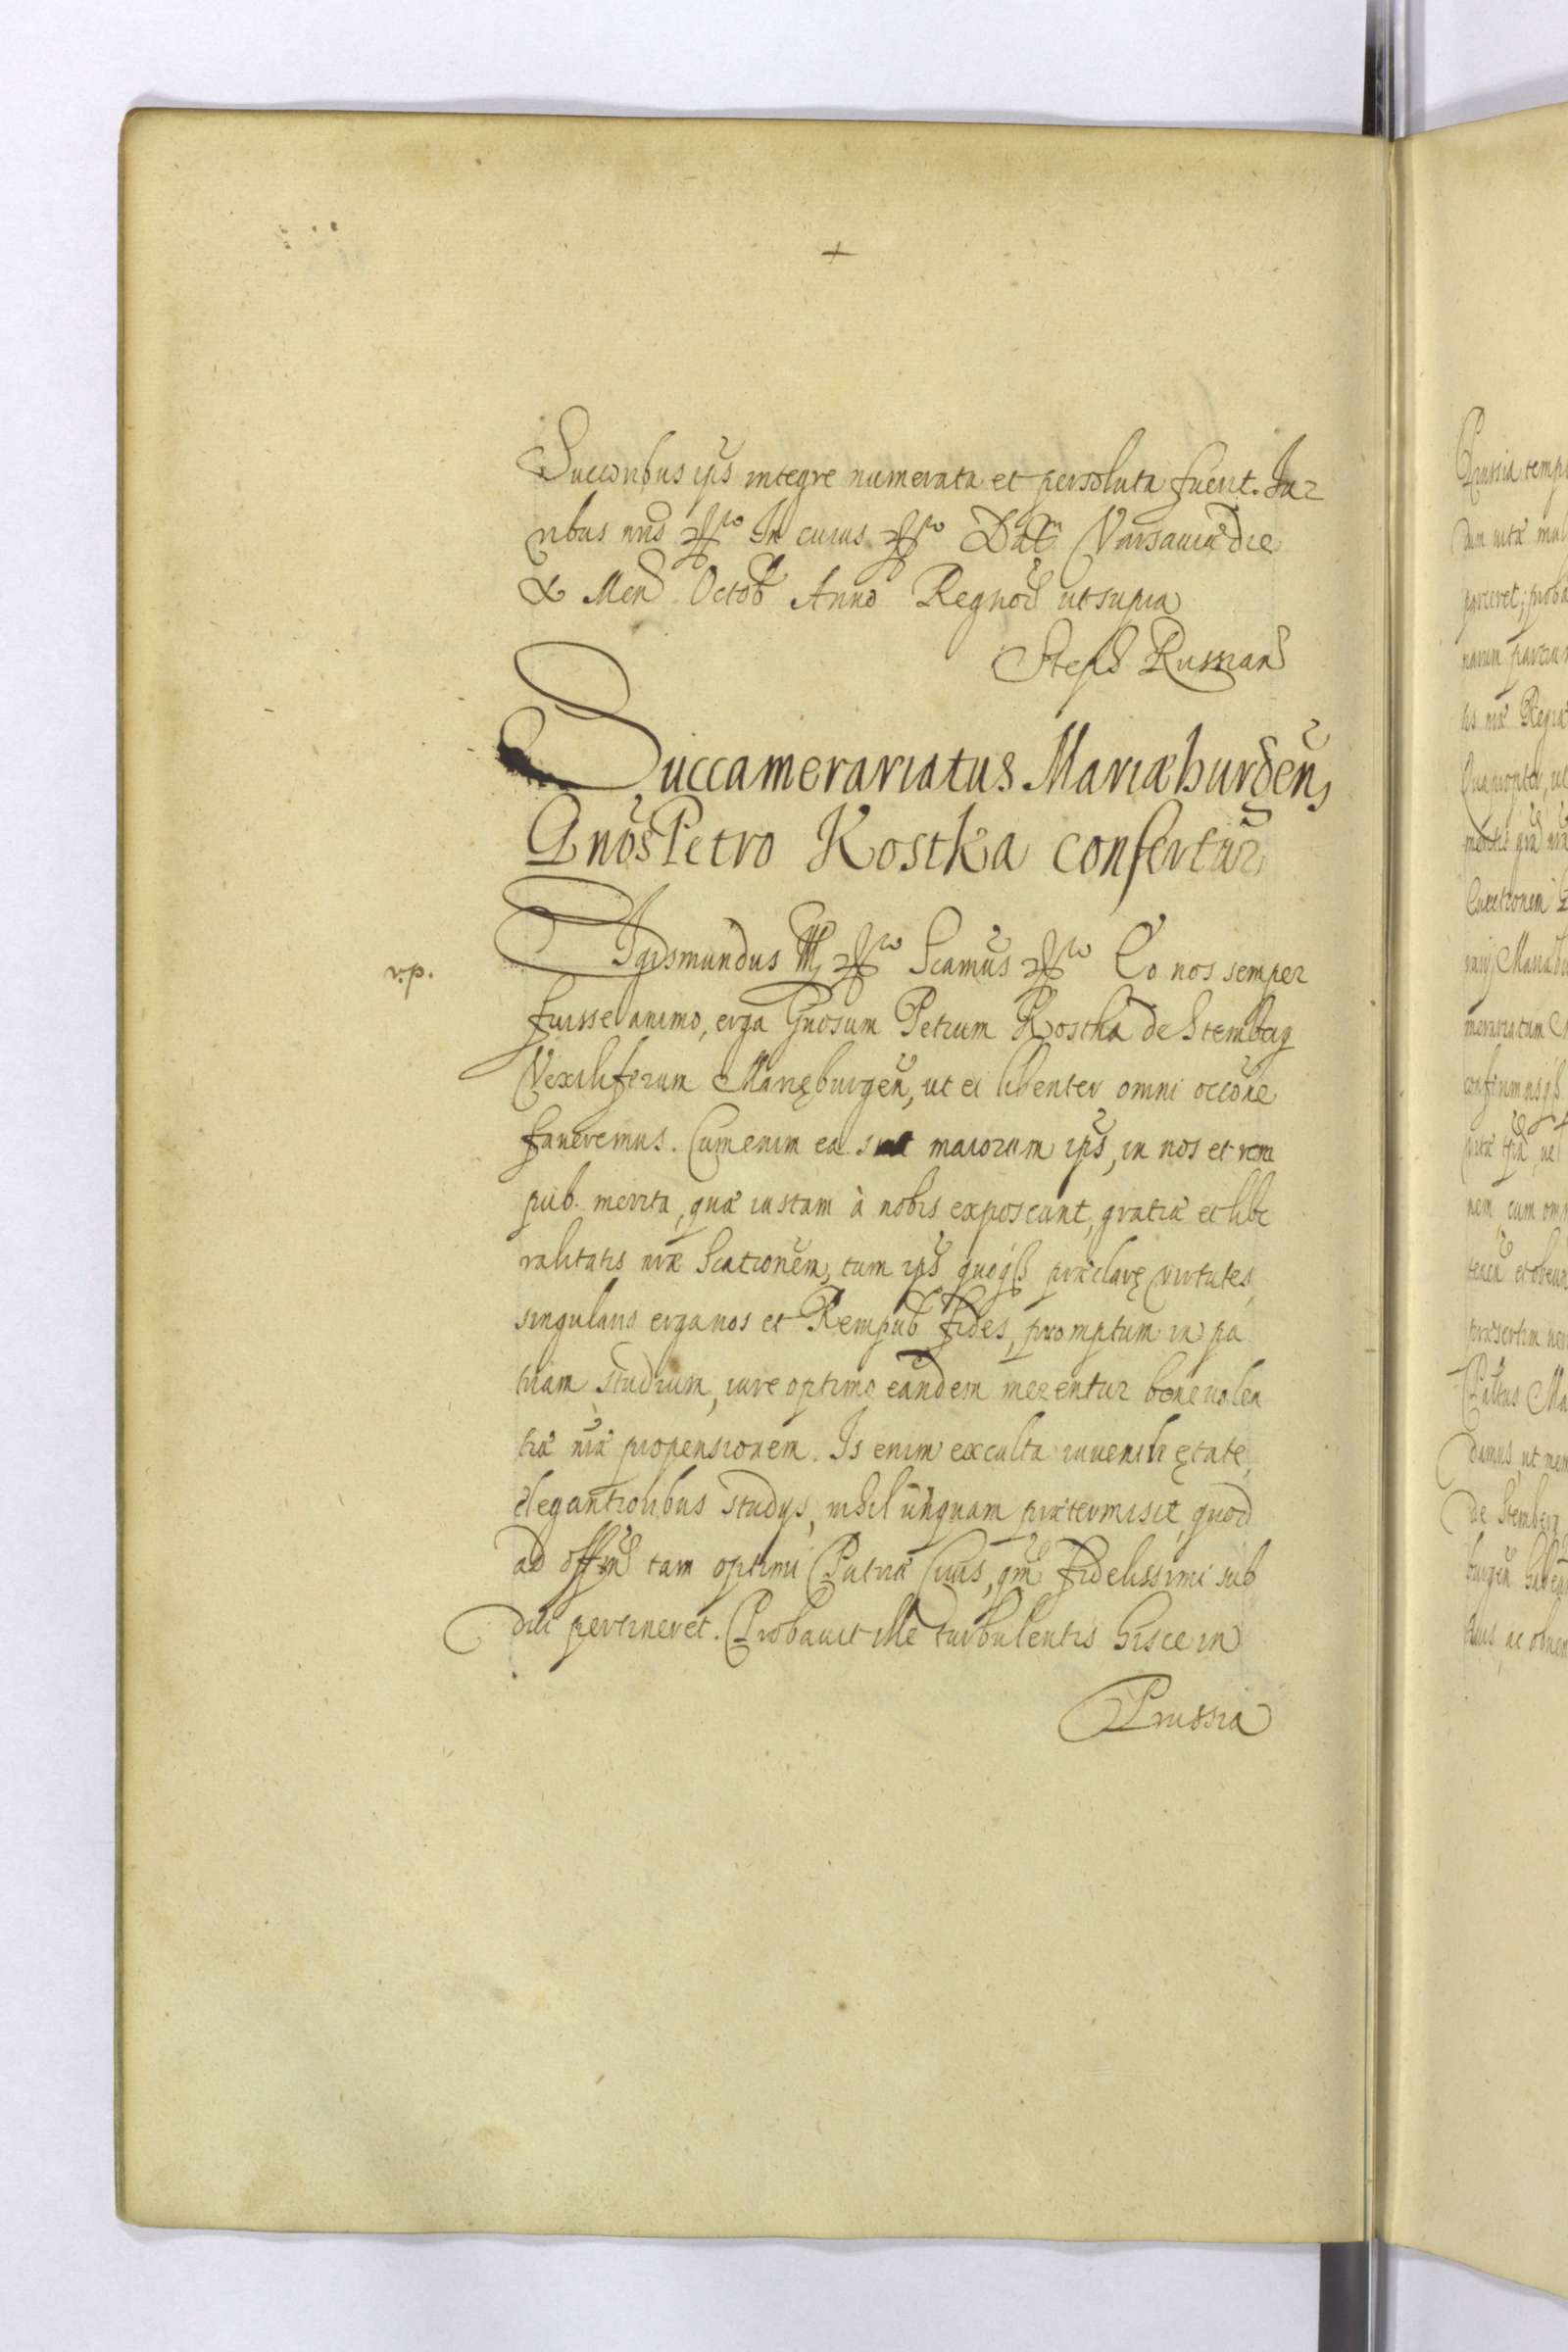 +
Succoribus ips integre numerata et persoluta fuerit. Iu=
ribus nris etc. In cuius etc. Dat Varsauiæ die
X Men Octob Anno Regnor ut supra
Steph Russian
Succamerariatus Mariæburgen,
Gnos Petro Kostka confertur
Sigismundus III etc. Scamus etc. Eo nos semper
v.p.
fuisse animo, erga Gnosum Petrum Kostka de Stemberg
Vexiliferum Marięburgen, ut ei libenter omni occone
faueremus. Cum enim ea sunt maiorum ips, in nos et rem
pub. merita, quæ iustam à nobis exposcunt, gratiæ et libe
ralitatis nræ Scationem, tum ips quoq præclarę virtutes,
singularis erga nos et Rempub fides, promptum in pa
triam studium, iure optimo eandem merentur beneuolen
tiæ nræ propensionem. Is enim exculta iuuenili ętate,
elegantioribus studijs, nihil unquam prætermisit, quod
ad offm tam optimi Patriæ Ciuis, qm fidelissimi sub
diti pertineret. Probauit ille turbulentis hisce in
Prussia
Prussia temp
dam
parteret; proba
narum partium
Regiæ
Quapropter, ut
Mariæbu
merariatum
confirmusq
nem cum omn
præsertim
Palatinus Ma
damus, ut
de Stemberg
burgen